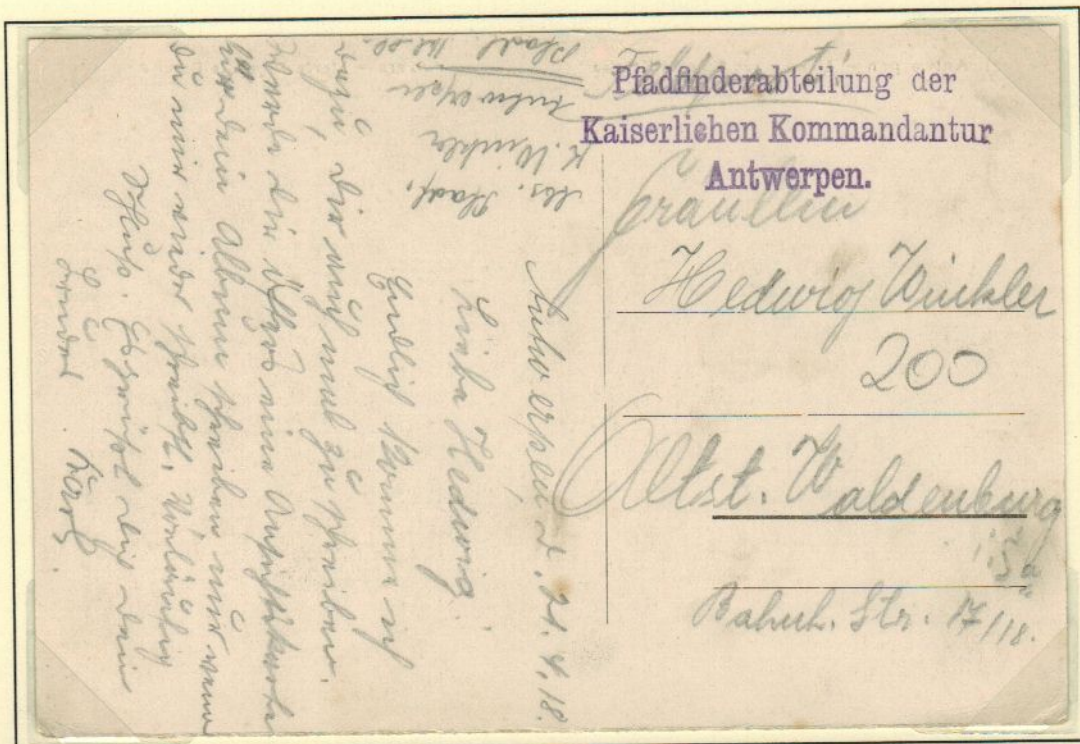 Feldpost!
Pfadfinderabteilung der
Kaiserlichen Kommandantur
Antwerpen.
Fräulein
Hedwig Winkler
200
Altst. Waldenburg
i. Sa
Bahnh. Str. 17/18.
Abs. Pfadf.
K. Winkler
Antwerpen
Antwerpen, d. 21. 4. 18.
Liebe Hedwig!
Endlich komme ich
dazu, dir auch mal zu schreiben.
Werde dir öfters eine Ansichtskarte
für dein Album schreiben nur wenn
du mir wieder schreibst. Vorläufig
Schluß. Es grüßt dich dein
Bruder Karl.